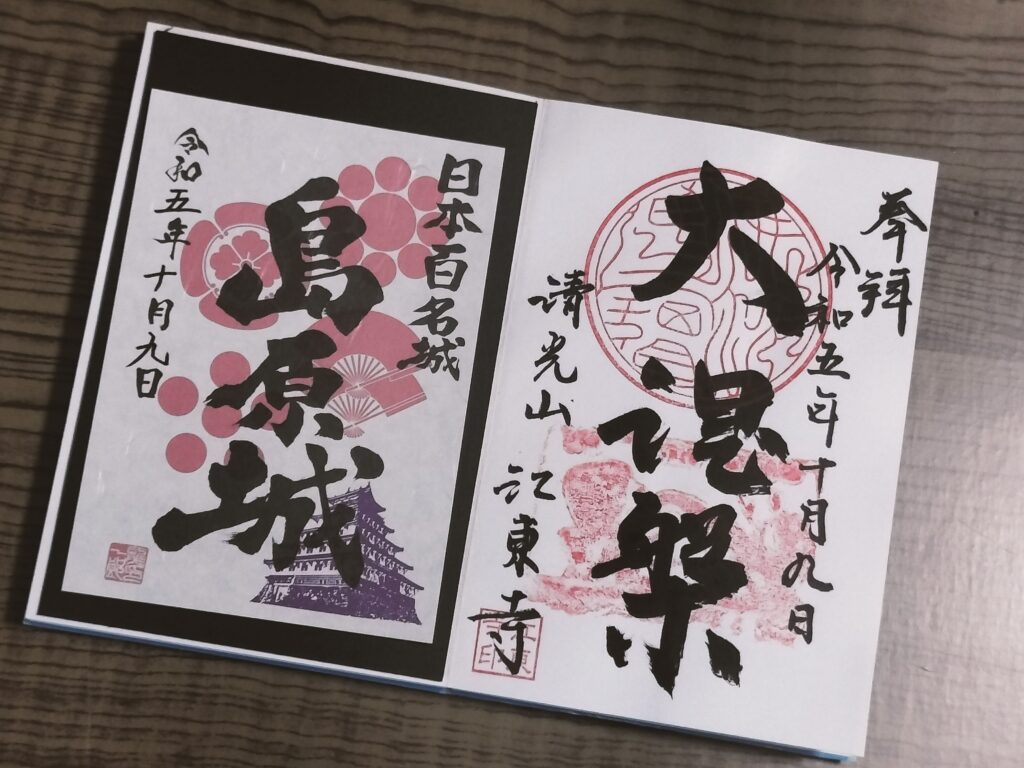 奉拝
令和五年十月九日
大涅槃
清光山 江東寺
日本百名城
島原城
令和五年十月九日